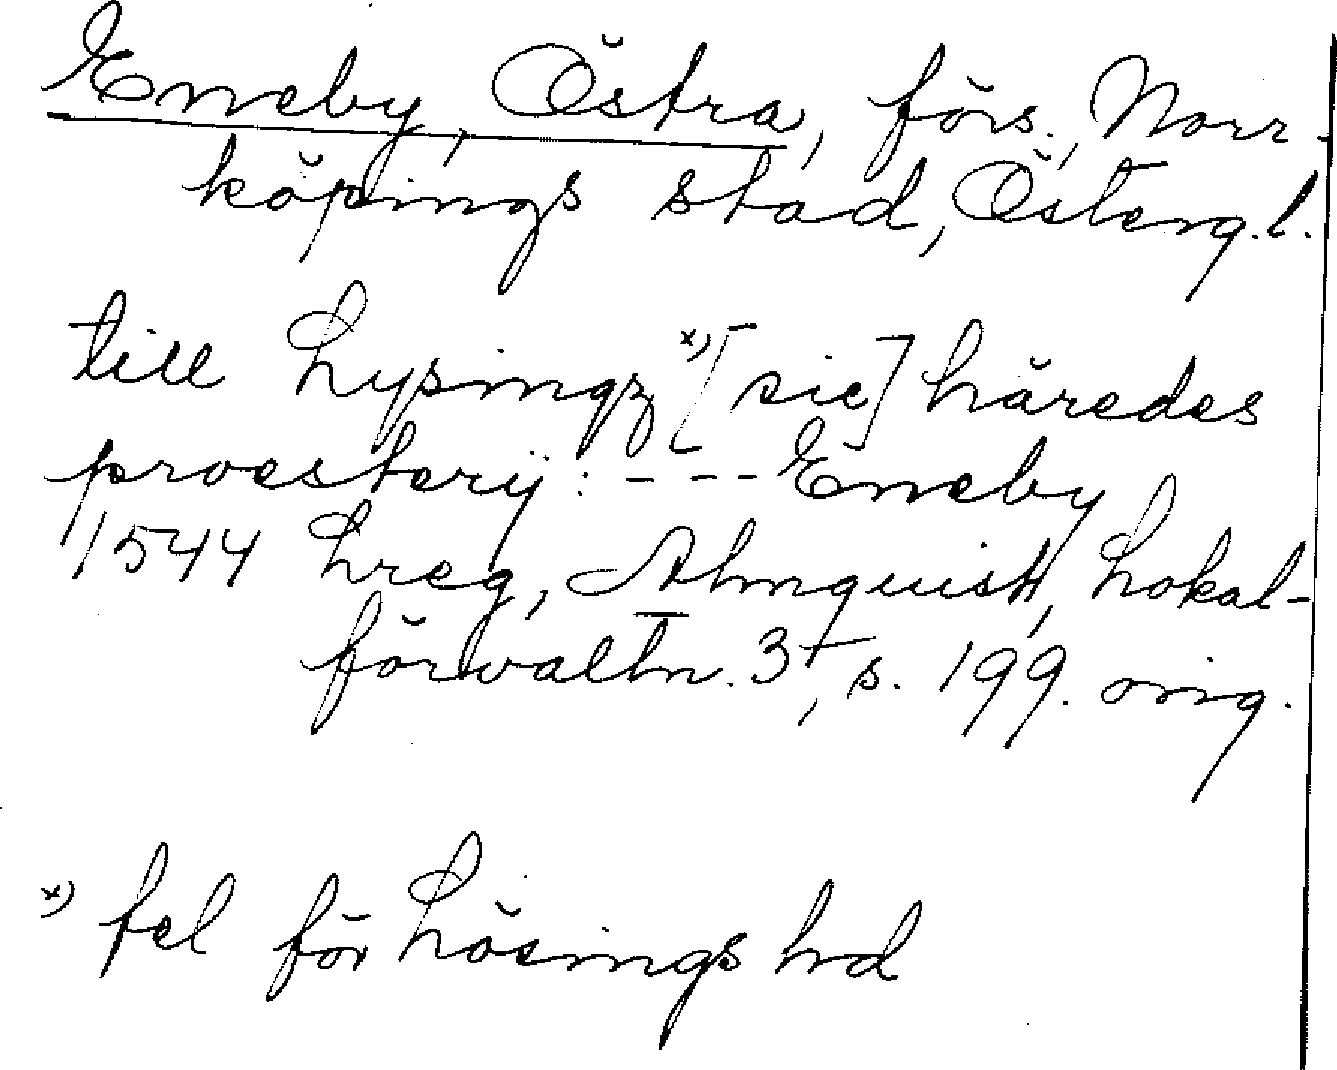 Eneby, Östra, förs., Norr-
köpings stad, Österg.l.
till Lysingz x) [sic] häredes
proestery: - - - Eneby
1544 Lreg, Almquist, Lokal-
förvaltn. 3, s. 199. orig.
x) fel för Lösings hd